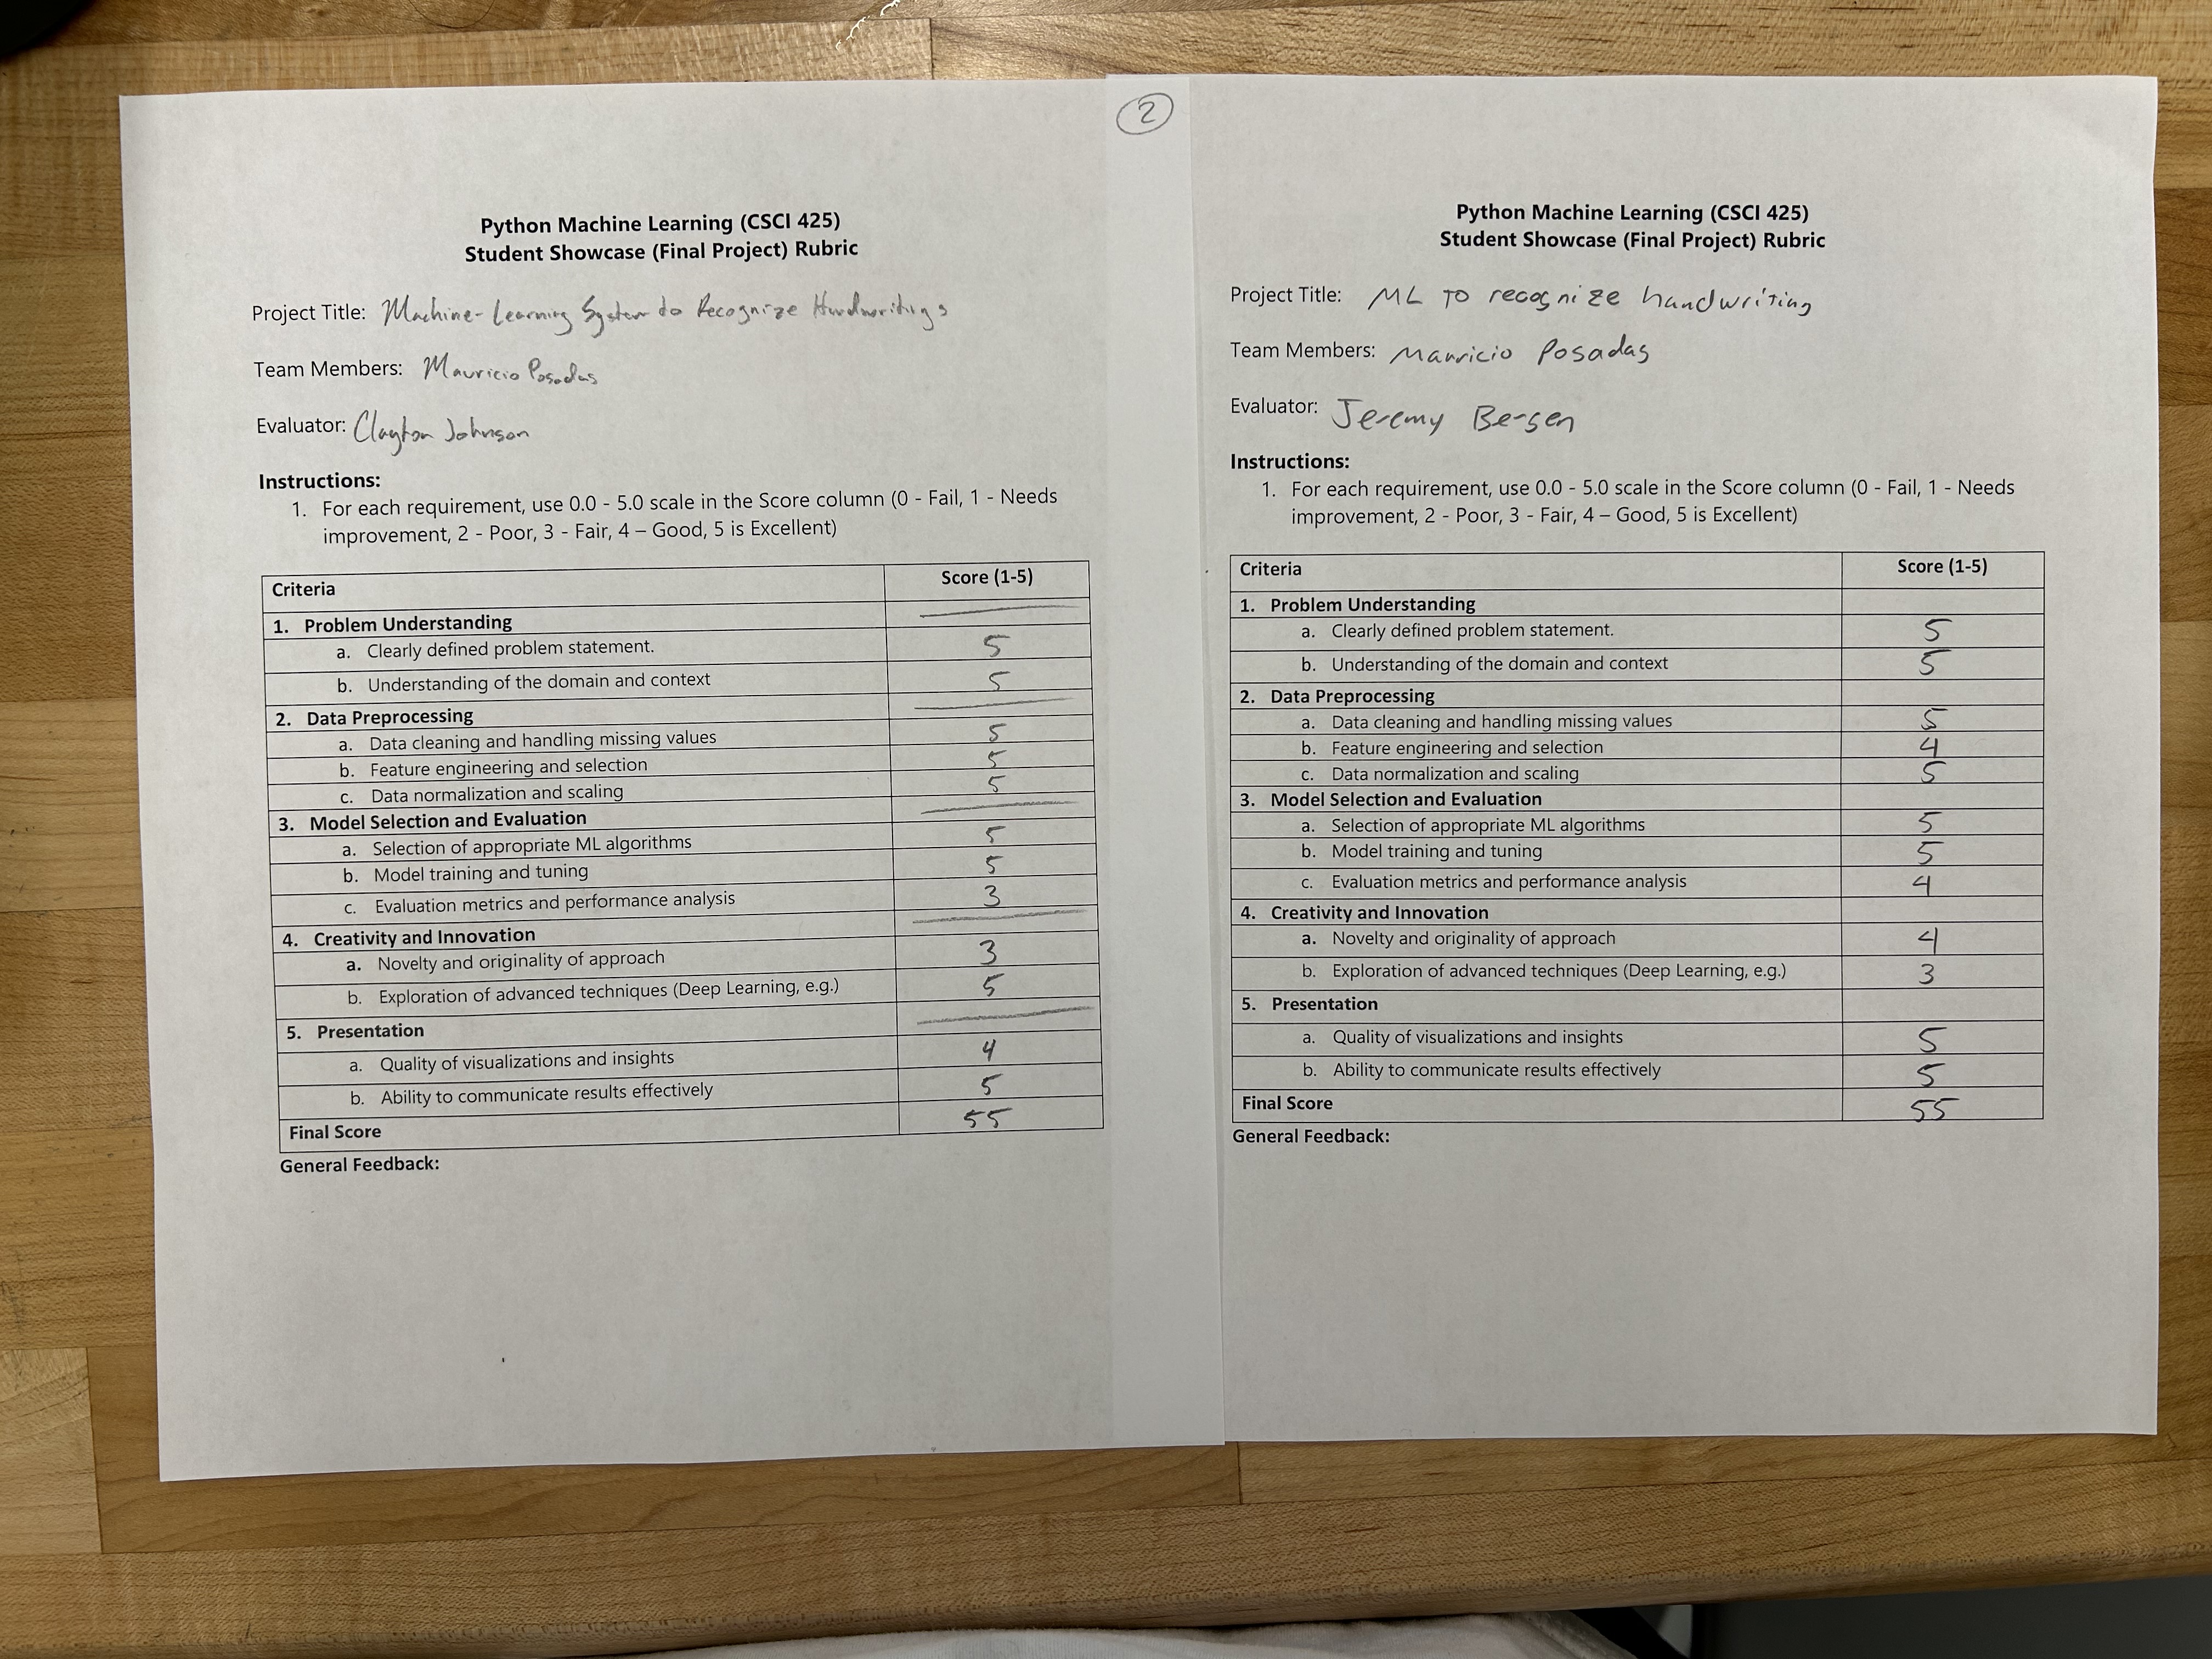 Python Machine Learning (CSCI 425)
Student Showcase (Final Project) Rubric
Project Title: Machine-Learning System to Recognize Handwritings
Team Members: Mauricio Posadas
Evaluator: Clayton Johnson
Instructions:
1. For each requirement, use 0.0 - 5.0 scale in the Score column (0 - Fail, 1 - Needs
improvement, 2 - Poor, 3 - Fair, 4 – Good, 5 is Excellent)
Criteria Score (1-5)
1. Problem Understanding
a. Clearly defined problem statement. 5
b. Understanding of the domain and context 5
2. Data Preprocessing
a. Data cleaning and handling missing values 5
b. Feature engineering and selection 5
c. Data normalization and scaling 5
3. Model Selection and Evaluation
a. Selection of appropriate ML algorithms 5
b. Model training and tuning 5
c. Evaluation metrics and performance analysis 3
4. Creativity and Innovation
a. Novelty and originality of approach 3
b. Exploration of advanced techniques (Deep Learning, e.g.) 5
5. Presentation
a. Quality of visualizations and insights 4
b. Ability to communicate results effectively 5
Final Score 55
General Feedback:
2
Python Machine Learning (CSCI 425)
Student Showcase (Final Project) Rubric
Project Title: ML TO recognize handwriting
Team Members: Mauricio Posadas
Evaluator: Jeremy Bergen
Instructions:
1. For each requirement, use 0.0 - 5.0 scale in the Score column (0 - Fail, 1 - Needs
improvement, 2 - Poor, 3 - Fair, 4 – Good, 5 is Excellent)
Criteria Score (1-5)
1. Problem Understanding
a. Clearly defined problem statement. 5
b. Understanding of the domain and context 5
2. Data Preprocessing
a. Data cleaning and handling missing values 5
b. Feature engineering and selection 4
c. Data normalization and scaling 5
3. Model Selection and Evaluation
a. Selection of appropriate ML algorithms 5
b. Model training and tuning 5
c. Evaluation metrics and performance analysis 4
4. Creativity and Innovation
a. Novelty and originality of approach 4
b. Exploration of advanced techniques (Deep Learning, e.g.) 3
5. Presentation
a. Quality of visualizations and insights 5
b. Ability to communicate results effectively 5
Final Score 55
General Feedback: